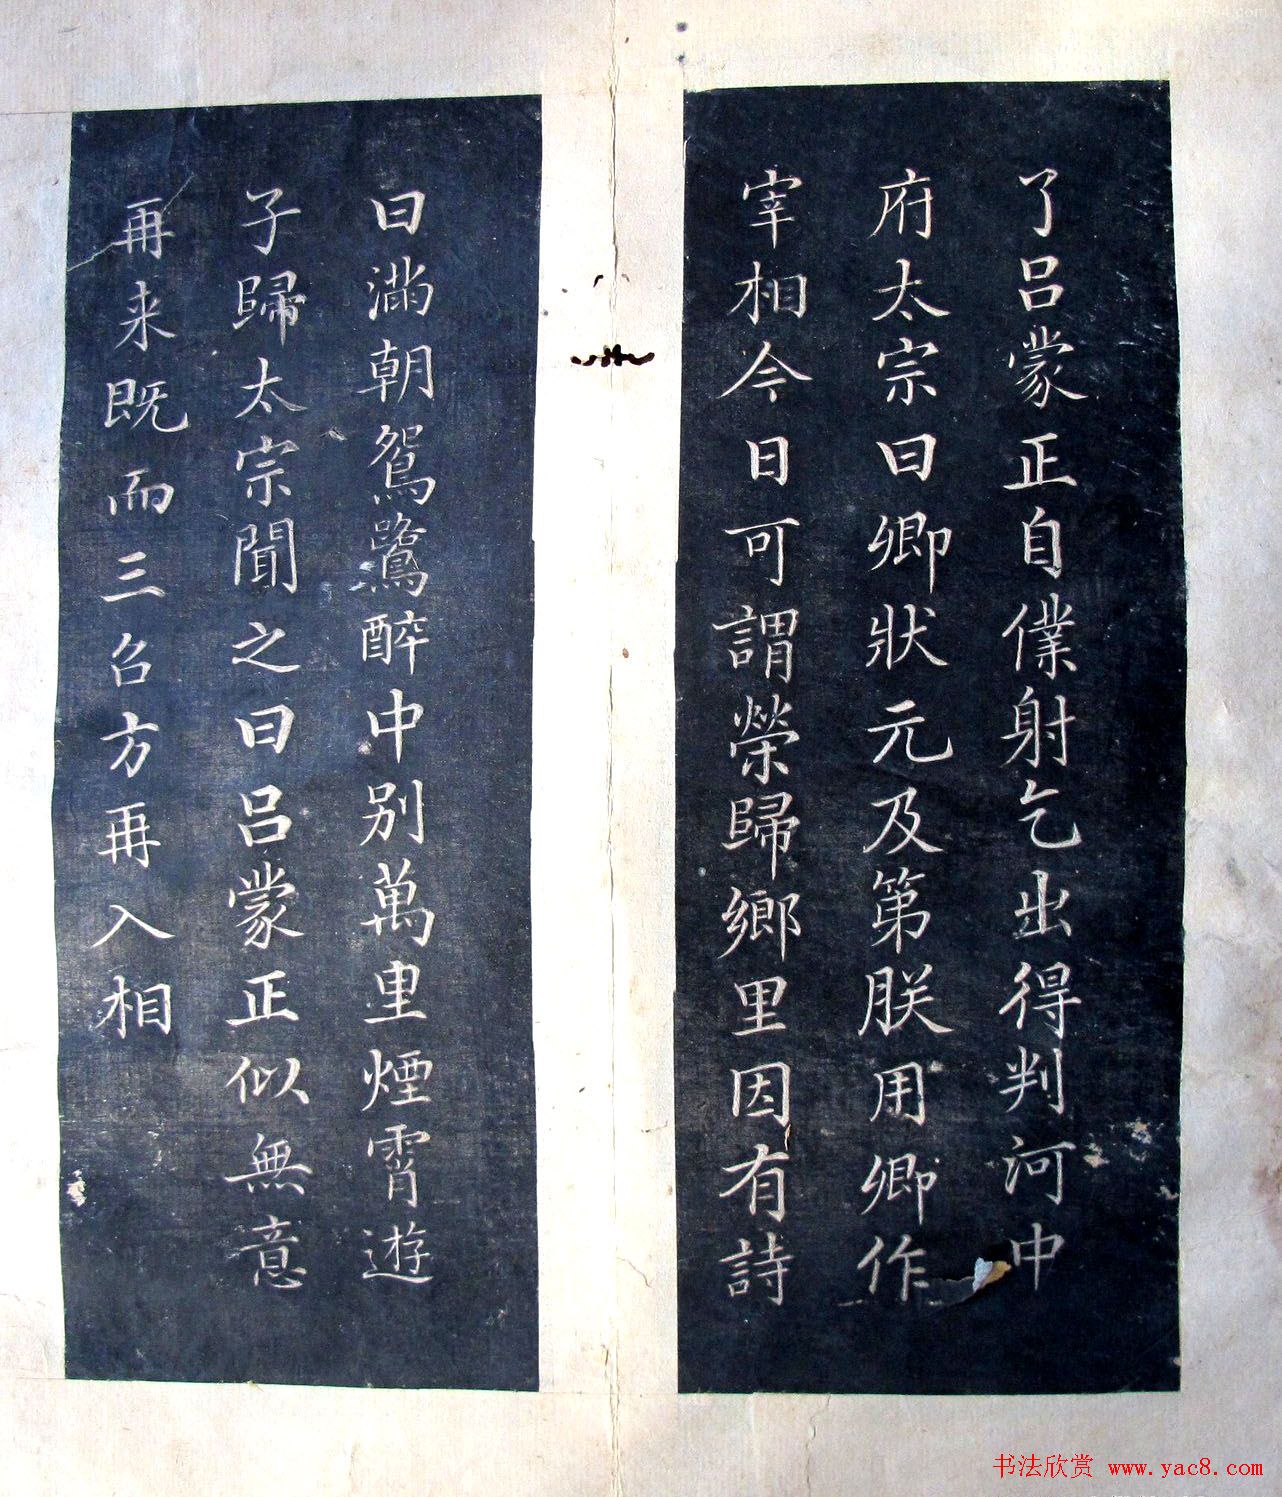 了呂蒙正自僕射乞出得判河中
府太宗曰卿狀元及第朕用卿作
宰相今日可謂榮歸鄉里因有詩
曰滿朝鴛鷺醉中别萬里煙霄遊
子歸太宗聞之曰呂蒙正似無意
再来既而三召方再入相
书法欣赏 www.yac8.com